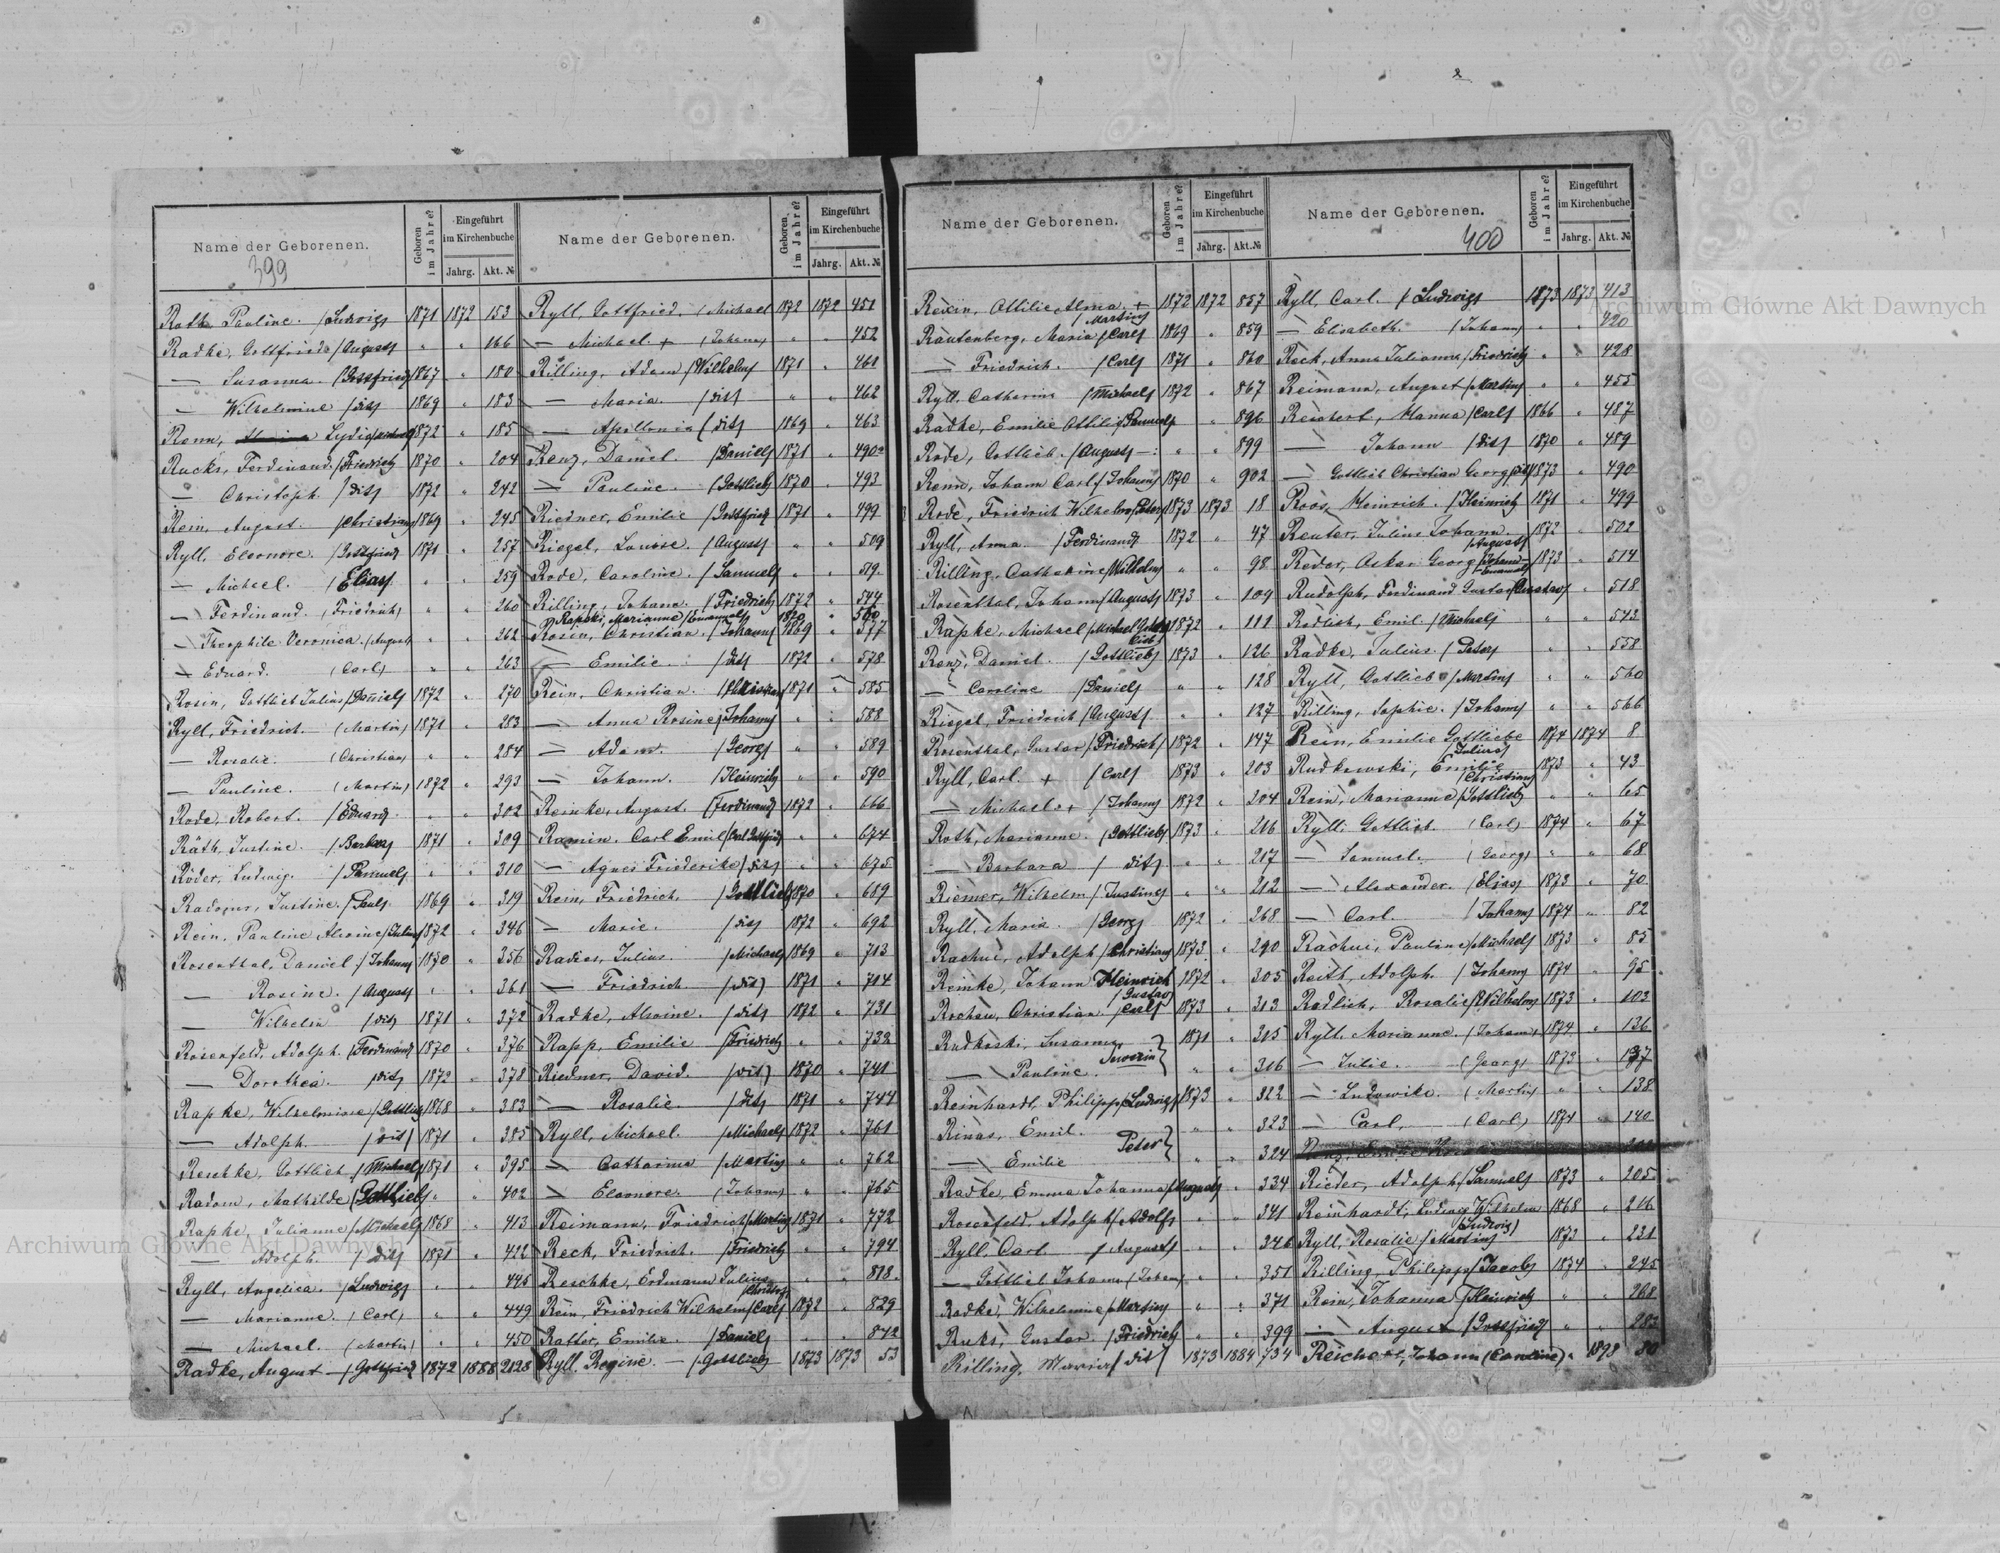 Name der Geborenen.
399
Geboren im Jahre?
Eingeführt im Kirchenbuche
Jahrg. Akt. №
Rath Pauline. /Ludwig/ 1871 1872 153
Radke, Gottfried /August/ " " 166
— Susanna. /Gottfried/ 1867 " 180
— Wilhelmine /dit/ 1869 " 183
Renn, Lydia /Michael/ 1872 " 185
Rucks, Ferdinand /Friedrich/ 1870 " 204
— Christoph. /dit/ 1872 " 242
Rein, August. /Christian/ 1869 " 245
Ryll, Eleonore. /Gottfried/ 1871 " 257
— Michael. /Elias/ " " 259
— Ferdinand. (Friedrich) " " 260
— Theophile Veronica. /August/ " " 262
— Eduard. (Carl) " " 263
Rosin, Gottlieb Julius /Daniel/ 1872 " 270
Ryll, Friedrich. (Martin) 1871 " 283
— Rosalie. (Christian) " " 284
— Pauline. (Martin) 1872 " 293
Rode, Robert. /Eduard/ " " 302
Räth, Justine. /Barbara/ 1871 " 309
Röder, Ludwig. /Samuel/ " " 310
Justine. /Paul/ 1869 " 319
Rein, Pauline Alwine /Julius/ 1872 " 346
Rosenthal, Daniel /Johann/ 1870 " 356
— Rosine. /August/ " " 361
— Wilhelm /dit/ 1871 " 372
Rosenfeld, Adolph. /Ferdinand/ 1870 " 376
— Dorothea. /dit/ 1872 " 378
Rapke, Wilhelmine /Gottlieb/ 1868 " 383
— Adolph. /dit/ 1871 " 385
Reschke, Gottlieb /Michael/ 1871 " 395
Radom, Mathilde /Gottlieb/ " " 402
Rapke, Julianne /Michael/ 1868 " 413
— Adolph. /dit/ 1871 " 422
Ryll, Angelica. /Ludwig/ " " 445
— Marianne. (Carl) " " 449
— Michael. (Martin) " " 450
Radke, August — /Gottfried/ 1872 1888 2128
Name der Geborenen.
Geboren im Jahre?
Eingeführt im Kirchenbuche
Jahrg. Akt. №
Ryll, Gottfried. (Michael 1872 1872 451
— Michael + (Johann) " " 452
Rilling, Adam /Wilhelm/ 1871 " 461
— Maria. /dit/ " " 462
— Apollonia /dit/ 1869 " 463
Renz, Daniel. /Daniel/ 1871 " 490a
— Pauline. /Gottlieb/ 1870 " 493
Riedner, Emilie /Gottfried/ 1871 " 499
Riegel, Louise. /August/ " " 509
Rode, Caroline. /Samuel/ " " 519
Rilling, Johann. /Friedrich/ 1872 " 544
Rapski, Marianne /Emanuel/ 1870 560
Rosin, Christian. /Johann/ 1869 " 577
— Emilie. /dit/ 1872 " 578
Rein, Christian. /Christian/ 1871 " 585
— Anna Rosine /Johann/ " " 588
— Adam. /Georg/ " " 589
— Johann. /Heinrich/ " " 590
Reinke, August. /Ferdinand/ 1872 " 666
Ramin. Carl Emil /Carl Gottfried/ " " 674
— Agnes Friederike /dit/ " " 675
Rein, Friedrich. /Gottlieb/ 1870 " 689
— Marie. /dit/ 1872 " 692
Radies, Julius. /Michael/ 1869 " 713
— Friedrich. /dit/ 1871 " 714
Radke, Alwine. /dit/ 1872 " 731
Rapp, Emilie /Friedrich/ " " 732
Riedner, David. /dit/ 1870 " 741
— Rosalie. /dit/ 1871 " 744
Ryll, Michael. /Michael/ 1872 " 761
— Catharina /Martin/ " " 762
— Eleonore. (Johann) " " 765
Reimann, Friedrich /Martin/ 1871 " 772
Reck, Friedrich. /Friedrich/ " " 794
Reschke, Erdmann Julius /Christof/ " " 818
Rein, Friedrich Wilhelm /Carl/ 1872 " 829
Ratter, Emilie. /Daniel/ " " 842
Ryll. Regine. — /Gottlieb/ 1873 1873 53
Name der Geborenen.
Geboren im Jahre?
Eingeführt im Kirchenbuche
Jahrg. Akt. №
Rewin, Ottilie Alma + /Martin/ 1872 1872 857
Rautenberg, Maria /Carl/ 1869 " 859
— Friedrich. /Carl/ 1871 " 860
Ryll, Catharina /Michael/ 1872 " 867
Radke, Emilie Ottilie /Samuel/ " 896
Rode, Gottlieb. /August/ " " 899
Renn, Johann Carl /Johann/ 1870 " 902
Rode, Friedrich Wilhelm /Peter/ 1873 1873 18
Ryll, Anna. /Ferdinand/ 1872 " 47
Rilling, Catharine /Wilhelm/ " " 98
Rosenthal, Johann /August/ 1873 " 109
Rapke, Michael /Michael Gottlieb/ 1872 " 111
Renz, Daniel. /Gottlieb/ 1873 " 126
— Caroline /Daniel/ " " 128
Riegel, Friedrich /August/ " " 127
Rosenthal, Gustav /Friedrich/ 1872 " 147
Ryll, Carl. + /Carl/ 1873 " 203
— Michael + /Johann/ 1872 " 204
Roth, Marianne. /Gottlieb/ 1873 " 216
— Barbara / dit/ " " 217
Riemer, Wilhelm /Justine/ " " 212
Ryll, Maria. /Georg/ 1872 " 268
Rachui, Adolph /Christian/ 1873 " 290
Reinke, Johann Heinrich /Gustav/ 1872 " 305
Rochau, Christian. /Carl/ 1873 " 313
Rudkoski, Susanna } Severin 1871 " 315
— Pauline. " " 316
Reinhardt, Philipp /Ludwig/ 1873 " 322
Rinas, Emil. } Peter " " 323
— Emilie " " 324
Radke, Emma Johanna /August/ " " 334
Rosenfeld, Adolph /Adolf/ " " 341
Ryll, Carl /August/ " " 346
— Gottlieb Johann (Johann) " " 351
Radke, Wilhelmine /Martin/ " " 371
Ruks, Gustav. /Friedrich/ " " 399
Rilling, Maria / dit/ 1873 1884 734
Name der Geborenen.
400
Geboren im Jahre?
Eingeführt im Kirchenbuche
Jahrg. Akt. №
Ryll, Carl. /Ludwig/ 1873 1873 413
— Elisabeth. /Johann/ " " 420
Reck, Anna Julianna /Friedrich/ " " 428
Reimann, August /Martin/ " " 455
Reichert, Hanna /Carl/ 1866 " 487
— Johann /dit/ 1870 " 489
— Gottlieb Christian Georg /dit/ 1873 " 490
Roos, Heinrich. /Heinrich/ 1871 " 499
Reuter, Julius Johann. /August/ 1872 " 502
Redor, Oskar Georg /Johann Emanuel/ 1873 " 514
Rudolph, Ferdinand Gustav /Gustav/ " " 518
Redlich, Emil /Michael/ " " 543
Radke, Julius. /Peter/ " " 558
Ryll, Gottlieb /Martin/ " " 560
Rilling, Sophie. /Johann/ " " 566
Rein, Emilie Gottliebe /Julius/ 1874 1874 8
Rudkowski, Emilie /Christian/ 1873 " 43
Rein, Marianne /Gottlieb/ " " 65
Ryll, Gottlieb. (Carl) 1874 " 67
— Samuel. (Georg) " " 68
— Alexander. (Elias) 1873 " 70
— Carl. /Johann/ 1874 " 82
Rachui, Pauline /Michael/ 1873 " 85
Reith, Adolph. /Johann/ 1874 " 95
Radlich, Rosalie /Wilhelm/ 1873 " 103
Ryll, Marianne. (Johann) 1874 " 136
— Julie. (Georg) 1873 " 137
— Ludowike. (Martin) " " 138
— Carl. (Carl) 1874 " 140
Rieder, Adolph /Samuel/ 1873 " 205
Reinhardt, Ludwig Wilhelm /Ludwig/ 1868 " 216
Ryll, Rosalie /Martin/ 1873 " 231
Rilling, Philipp /Jacob/ 1874 " 245
Rein, Johanna /Heinrich/ " " 268
— August /Gottfried/ " " 282
Reichert, Johann (Caroline) " 1898 80
Archiwum Główne Akt Dawnych
Archiwum Główne Akt Dawnych